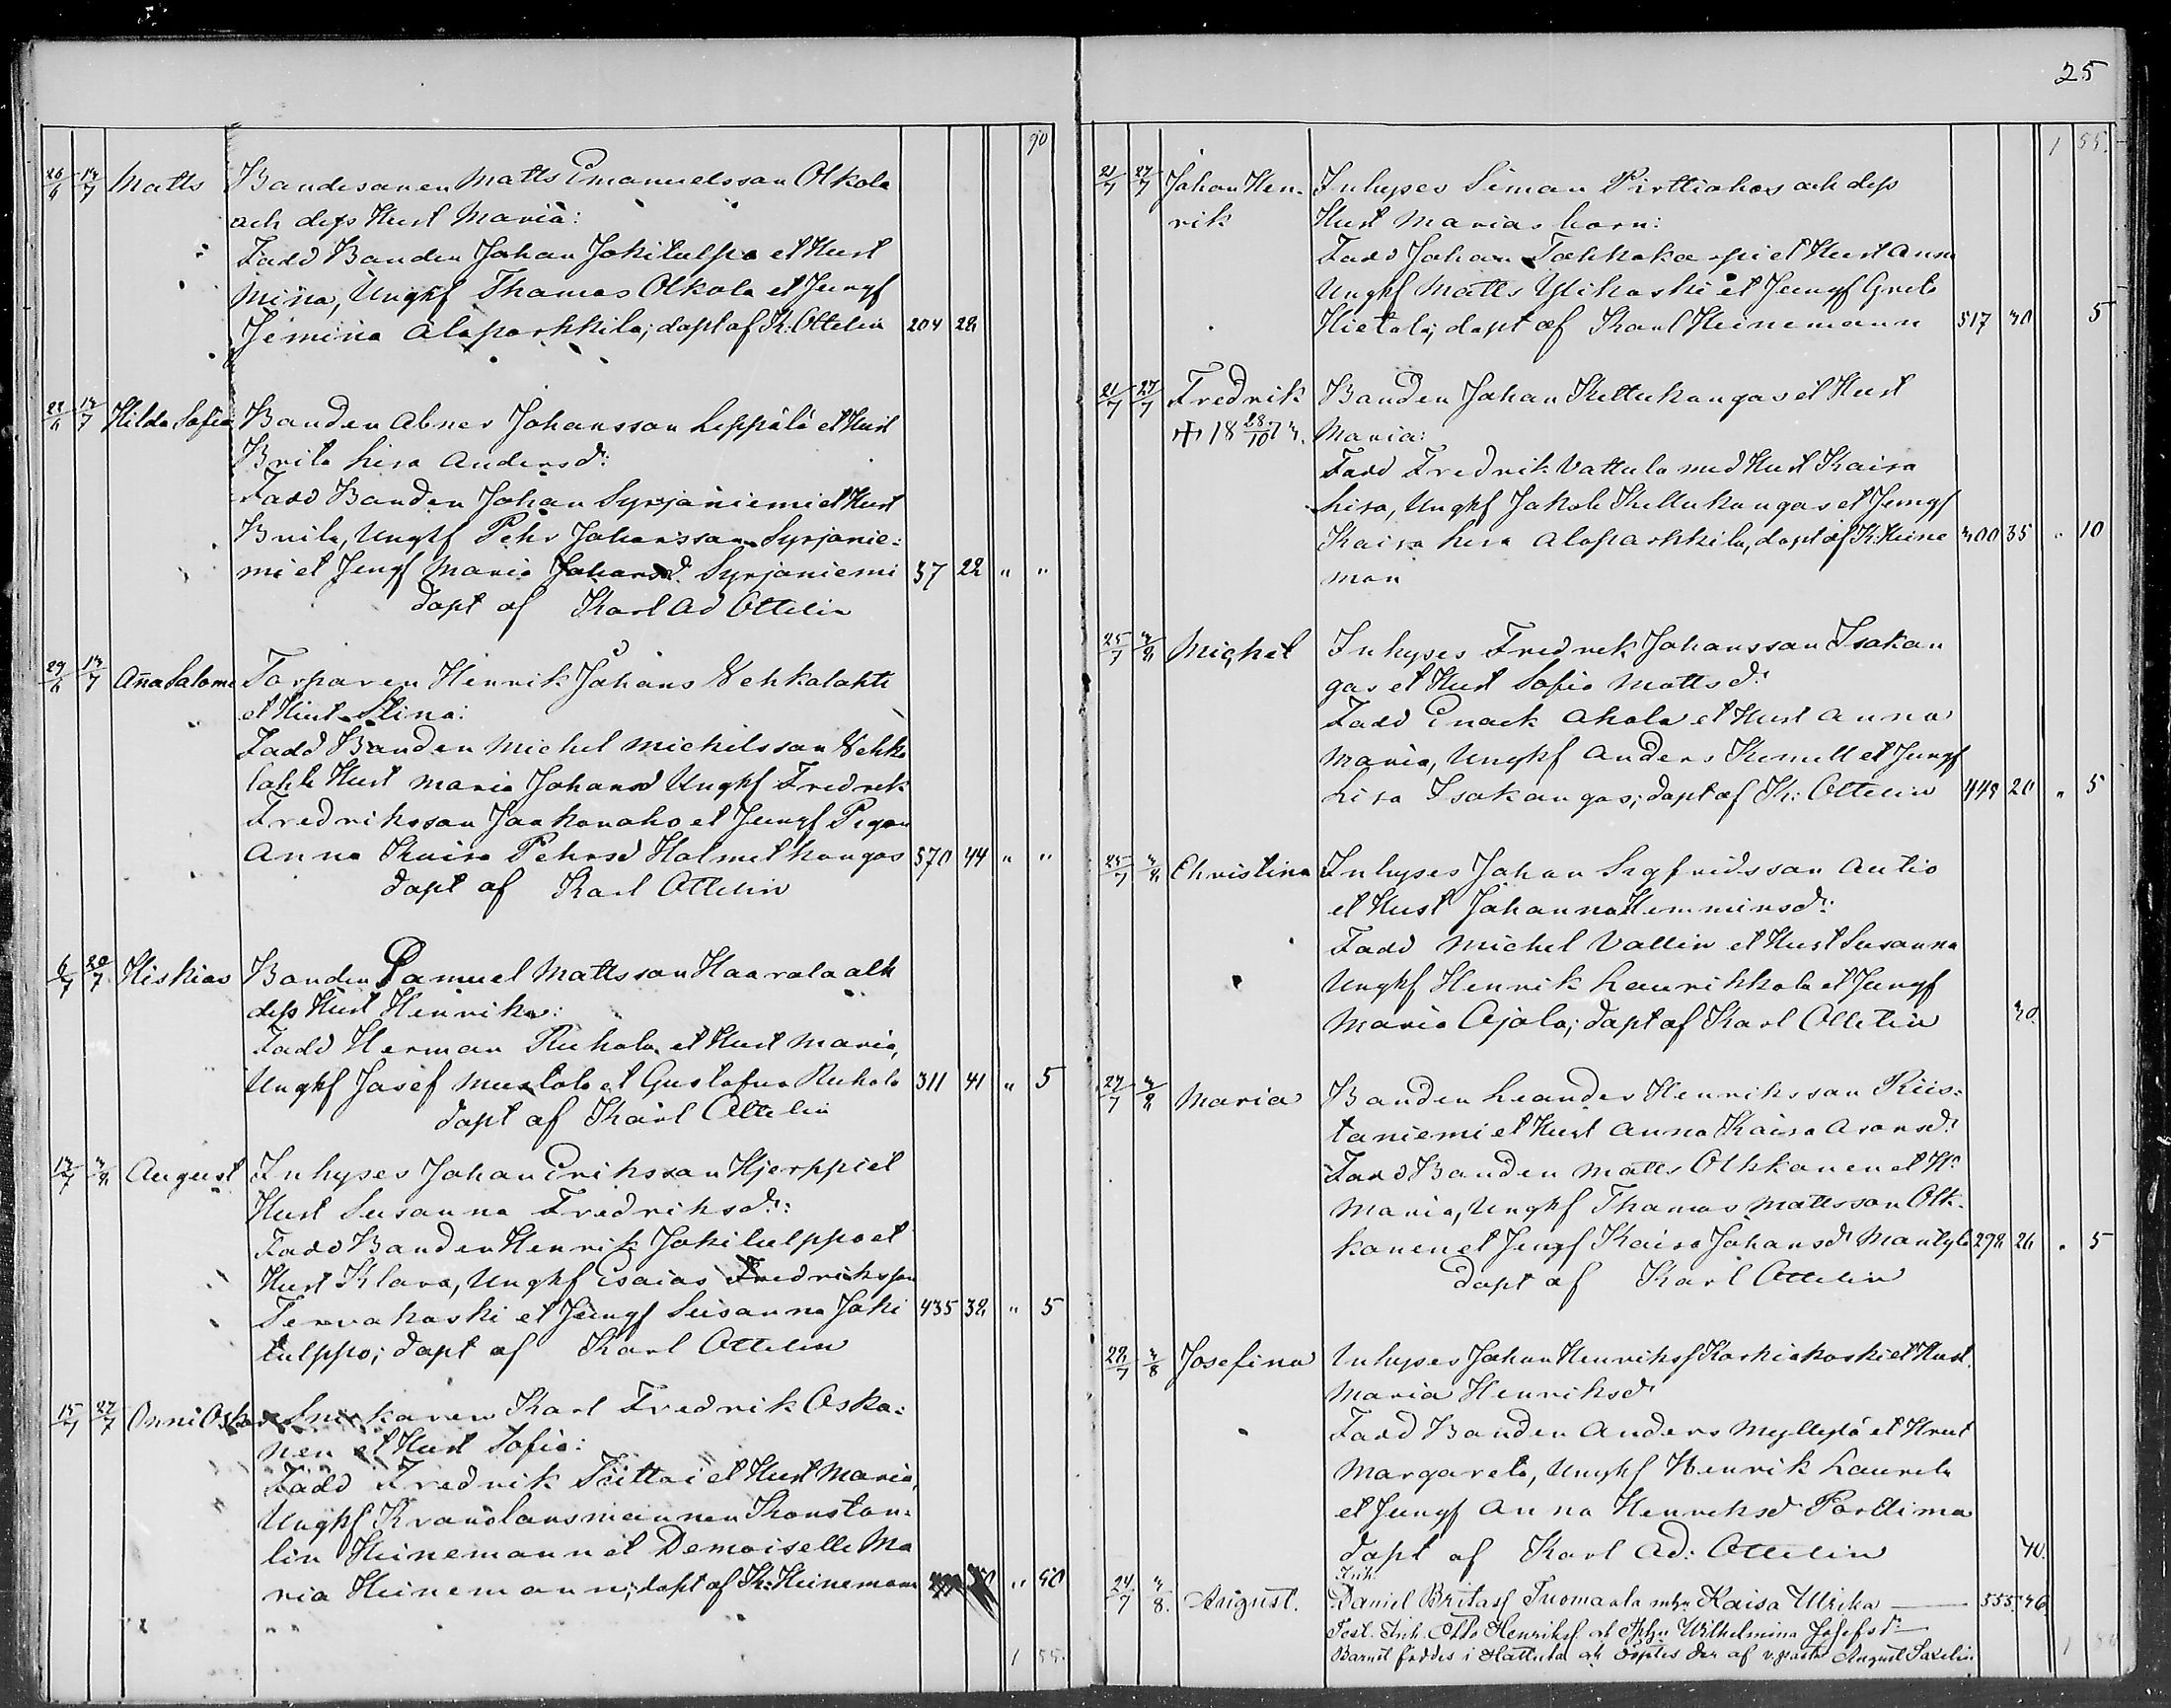 25
90
26/6 13/7 Matts Bandesonen Matts Emanuelsson Olkola
och dess Hust Maria:
Fadd Banden Johan Jokitulppo et Hust
Mina, Ungkf Thomas Olkola et Jungf
Jemina Alaparkkila; döpt af K: Ottelin 204 28
28/6 13/7 Hilda Sofia Banden Abner Johansson Leppälä et Hust
Brita Lisa Andersd:
Fadd Banden Johan Syrjäniemi et Hust
Brita, Ungkf Pehr Johansson Syrjänie:
mi et Jungf Maria Johansd. Syrjäniemi 37 22 " "
döpt af Karl Ad Ottelin
29/6 13/7 Anna Salome Torparen Henrik Johans Vehkalahti
et Hust Stina:
Fadd Banden Michel Michelsson Vehka
lahti Hust Maria Johansd Ungkf Fredrik
Fredriksson Jaakonaho et Jungf Pigan
Anna Kaisa Pehrsd Halmetkangas 570 44 " "
döpt af Karl Ottelin
6/7 20/7 Hiskias Banden Samuel Mattsson Haarala och
dess Hust Henrika:
Fadd Herman Ruhala et Hust Maria,
Ungkf Josef Mustola et Gustafva Ruhala 311 41 " 5
döpt af Karl Ottelin
13/7 3/8 August Inhyses Johan Eriksson Hjerppi et
Hust Susanna Fredriksd:
Fadd Banden Henrik Jokitulppo et
Hust Klara, Ungkf Esaias Fredriksson
Tervakoski et Jungf Susanna Joki 435 32 " 5
tulppo; döpt af Karl Ottelin
15/7 27/7 Onni Oskar Snickaren Karl Fredrik Oska:
nen et Hust Sofia:
Fadd Fredrik Tiittoi et Hust Maria,
Ungkf Kronolänsmannen Konstan:
tin Heinemann et Demoiselle Ma
ria Heinemann; döpt af K: Heinemann " 50
1 55.
1 55.
21/7 27/7 Johan Hen- Inhyses Simon Pirttiahos och dess
rik Hust Marias barn:
Fadd Johan et Hust Anna
Ungkf Matts Ylikoski et Jungf Greta
Hietala; döpt af Karl Heinemann 517 30 5
21/7 27/7 Fredrik Banden Johan Kettukangas et Hust
+ 18 28/10 73. Maria:
Fadd Fredrik Vattula med Hust Kaisa
Lisa, Ungkf Jakob Kettukangas et Jungf
Kaisa Lisa Alaparkkila, döpt af K: Heine 300 35 " 10
man
25/7 3/8 Michel Inhyses Fredrik Johansson Isokan
gas et Hust Sofia Mattsd:
Fadd Enock Ahola et Hust Anna
Maria, Ungkf Anders et Jungf
Lisa Isokangas; döpt af K: Ottelin 448 20 " 5
25/7 3/8 Christina Inhyses Johan Sigfridsson Autio
et Hust Johanna Hemminsd:
Fadd Michel Vallin et Hust Susanna
Ungkf Henrik Laurikkala et Jungf
Maria Ojala; döpt af Karl Ottelin 30.
27/7 3/8 Maria Banden Leander Henriksson Riis:
taniemi et Hust Anna Kaisa Aronsd:
Fadd Banden Matts Olkkonen et H:
Maria, Ungkf Thomas Mattsson Olk-
konen et Jungf Kaisa Johansd: Mantyla 278 26 " 5
döpt af Karl Ottelin
28/7 3/8 Josefina Inhyses Johan Henrikss Koskikoski et Hust
Maria Henriksd:
Fadd Banden Anders Myllylä et Hust
Margareta, Ungkf Henrik Laurela
et Jungf Anna Henriksd
döpt af Karl Ad: Ottelin 40.
24/7 3/8. August. Inh. Daniel Britass Tuomaala m hu Kaisa Ulrika 555. 46.
Test. Inh. Otto Henrikss och Wilhelmina Josefsd:
Barnet föddes i Hattula och döptes der af v. pastor August Saxelin